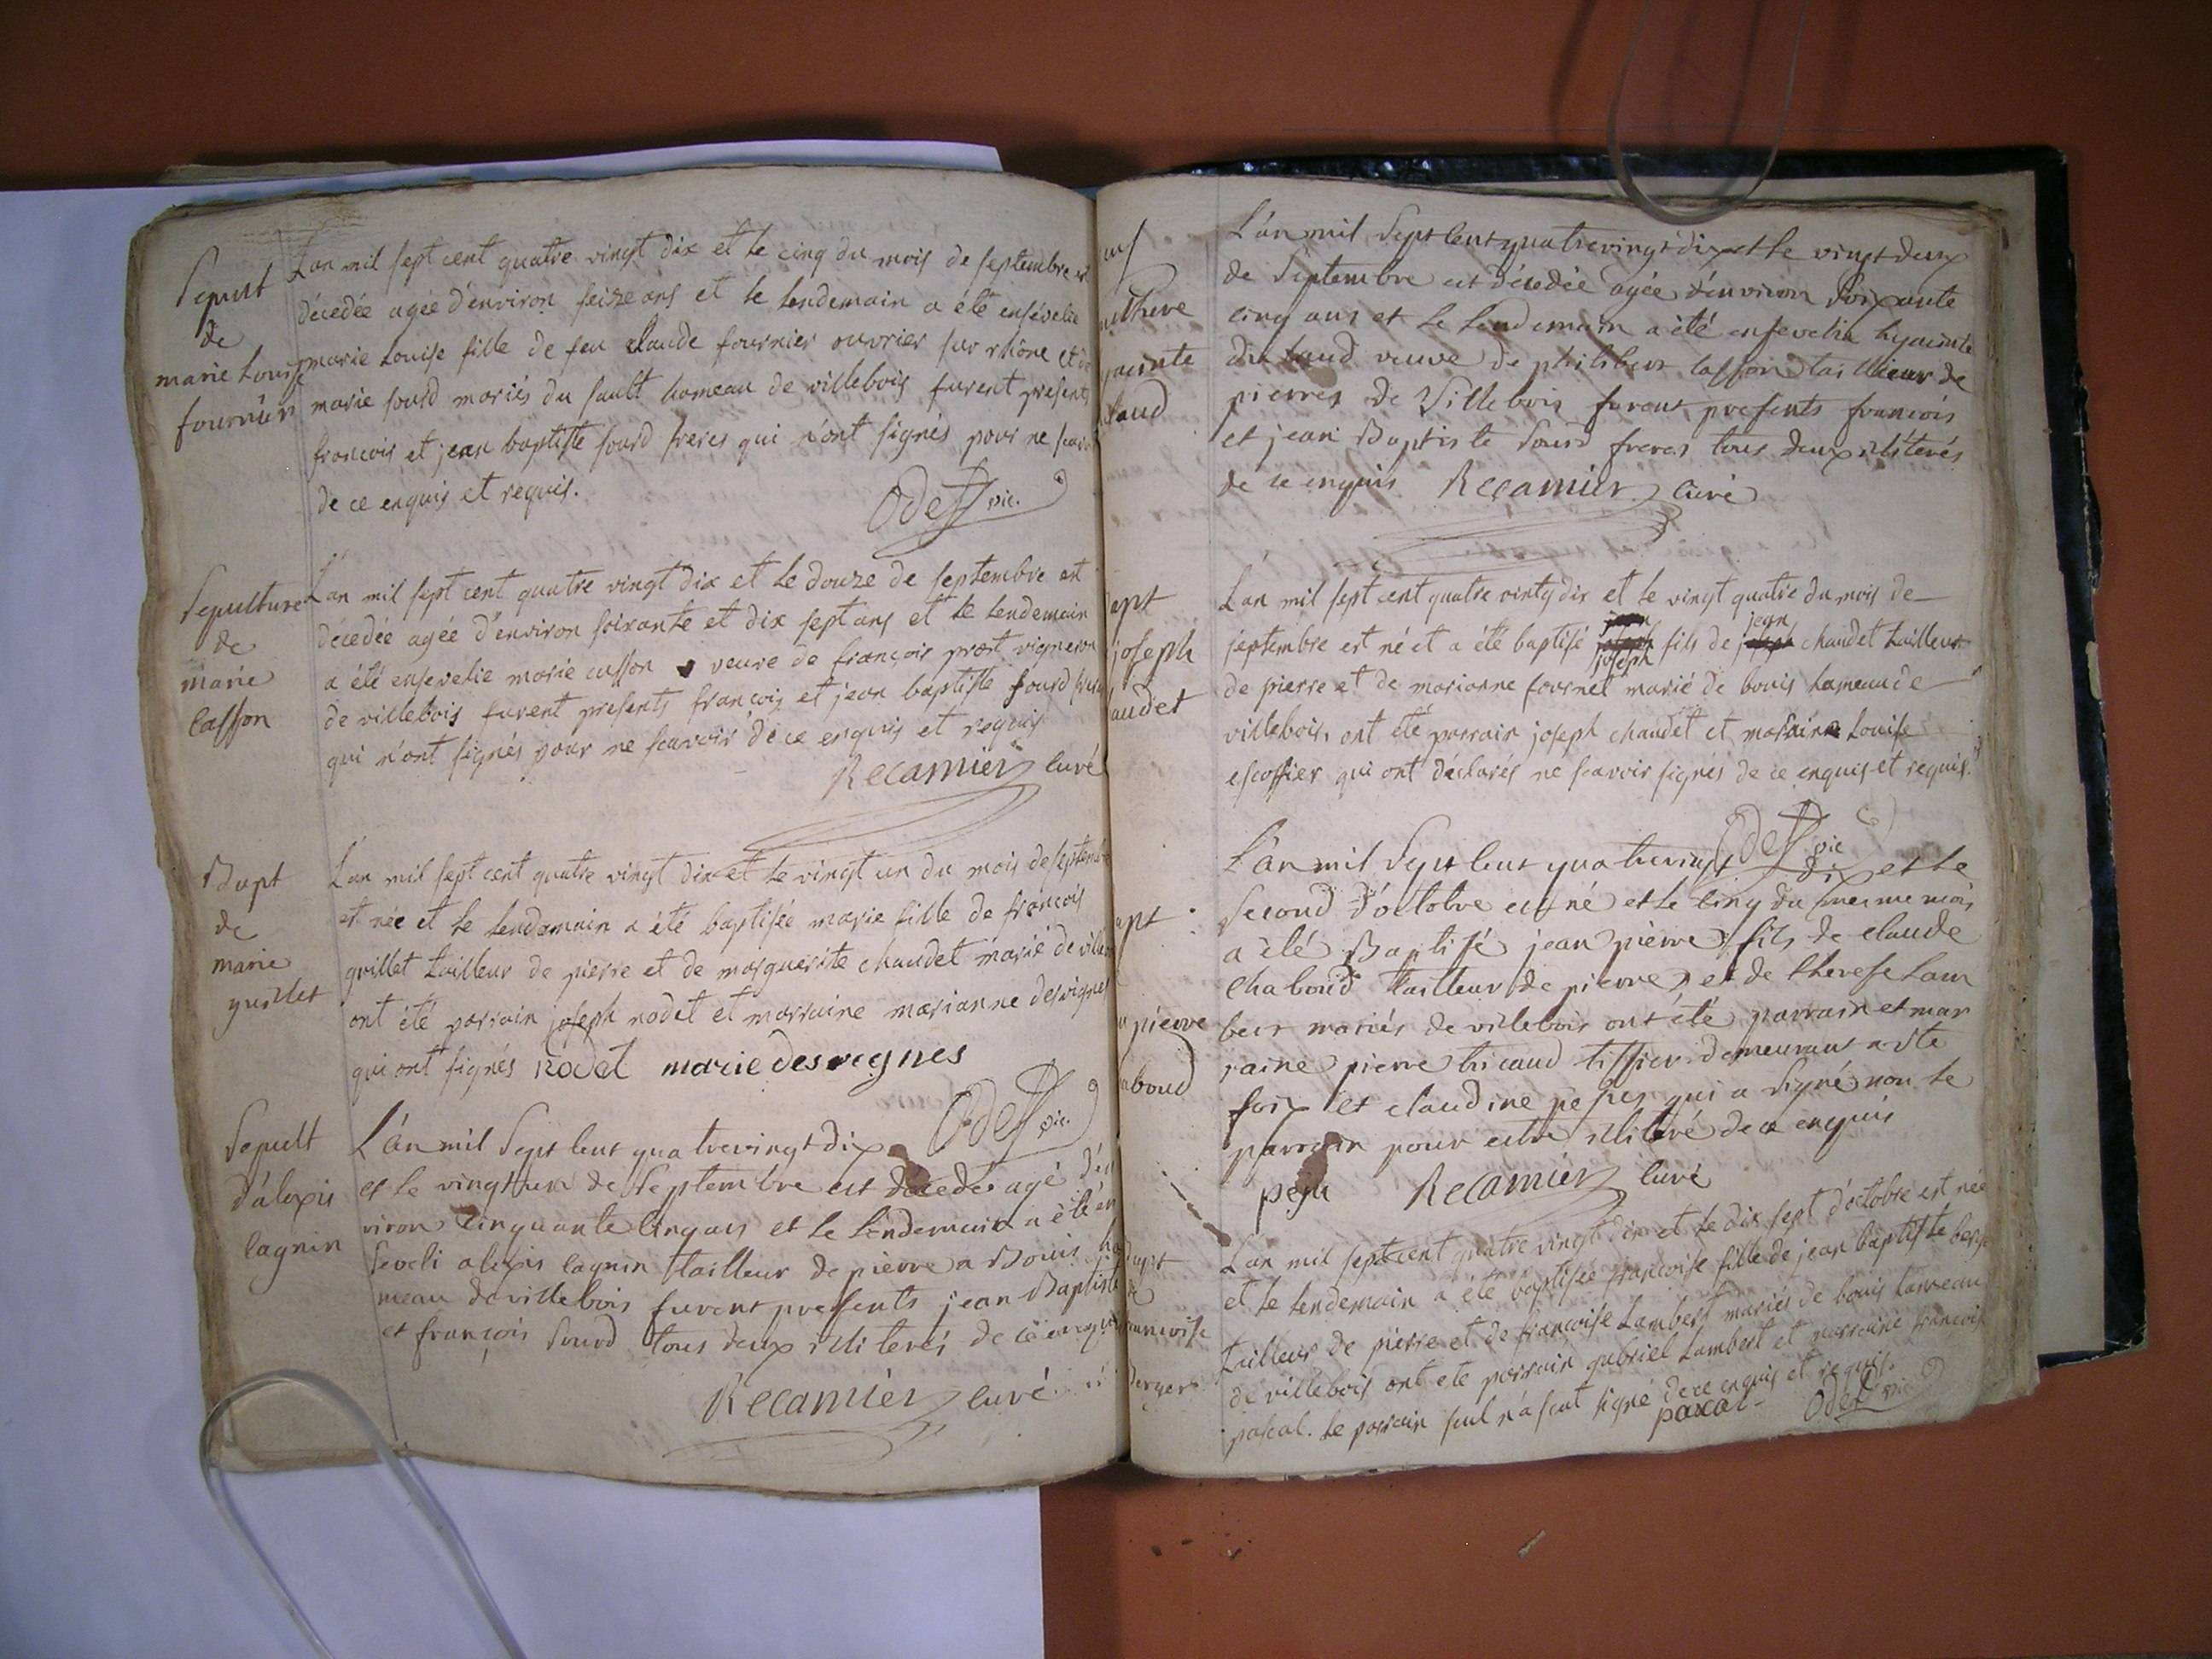 Sepult
de
marie Louise
fournier
L'an mil sept cent quatre vingt dix et le cinq du mois de septembre est
décédée agée d'environ seize ans et le lendemain a été ensévelie
marie Louise fille de feu claude fournier ouvrier sur rhône et de
marie sourd mariés du sault hameau de villebois furent presents
francois et jean baptiste sourd freres qui n'ont signés pour ne scavoir
de ce enquis et requis.
Odet vic.
Sepulture
de
marie
Casson
L'an mil sept cent quatre vingt dix et le douze de septembre est
décedée agée d'environ soixante et dix sept ans et le lendemain
a été ensevelie marie casson veuve de françois prost vigneron
de villebois furent presents françois et jean baptiste sourd freres
qui n'ont signés pour ne scavoir de ce enquis et requis
Recamier curé
Bapt
de
marie
guillet
L'an mil sept cent quatre vingt dix et le vingt un du mois de septembre
est née et le lendemain a été baptisée marie fille de francois
guillet tailleur de pierre et de marguerite chaudet marié de villebois
ont été parrain joseph rodet et marraine marianne desvignes
qui ont signés Rodet marie desvignes
Odet vic.
Sepult
d'alexis
cagnin
L'an mil Sept Cent quatrevingt dix
et le vingt un de Septembre est décedé agé d'en
viron Cinquante Cinq ans et le lendemain a été en
seveli alexis cagnin tailleur de pierre a Bouis ha
meau de villebois furent presents jean Baptiste
et françois Sourd tous deux illiterés de ce enquis
Recamier curé
jacinte
L'an mil Sept Cent quatrevingt dix et le vingt deux
de Septembre est décedée agée d'environ Soixante
cinq ans et le lendemain a été ensevelie hyacinte
veuve de philibert Casson tailleur de
pierres de Villebois furent presents françois
et jean Baptiste Sourd freres tous deux illiterés
de ce enquis Recamier Curé
apt
joseph
audet
L'an mil sept cent quatre vingt dix et le vingt quatre du mois de
septembre est né et a été baptisé joseph fils de jean chaudet tailleur
de pierre et de marianne fournel marié de bouis hameau de
villebois, ont été parrain joseph chaudet et marraine Louise
escoffier qui ont déclarés ne scavoir signés de ce enquis et requis.
Odet vic
apt
pierre
aboud
L'an mil Sept Cent quatrevingt dix et le
Second d'octobre est né et le cinq du mesme mois
a été Baptisé jean pierre fils de claude
Chaboud tailleur de pierre et de therese Lam
bert mariés de villebois ont été parrain et mar
raine pierre tricaud tissier demeurant a Ste
foix et claudine qui a Signé non le
parrain pour estre illiteré de ce enquis
peju Recamier Curé
Bapt
de
francoise
berger
L'an mil sept cent quatre vingt dix et le dix sept d'octobre est née
et le lendemain a été baptisée francoise fille de jean baptiste berger
tailleur de pierre et de francoise Lambert mariés de bouis hameau
de villebois ont été parrain gabriel Lambert et marraine francoise
pascal. Le parrain seul n'a scut signé de ce enquis et requis.
paxcal Odet vic